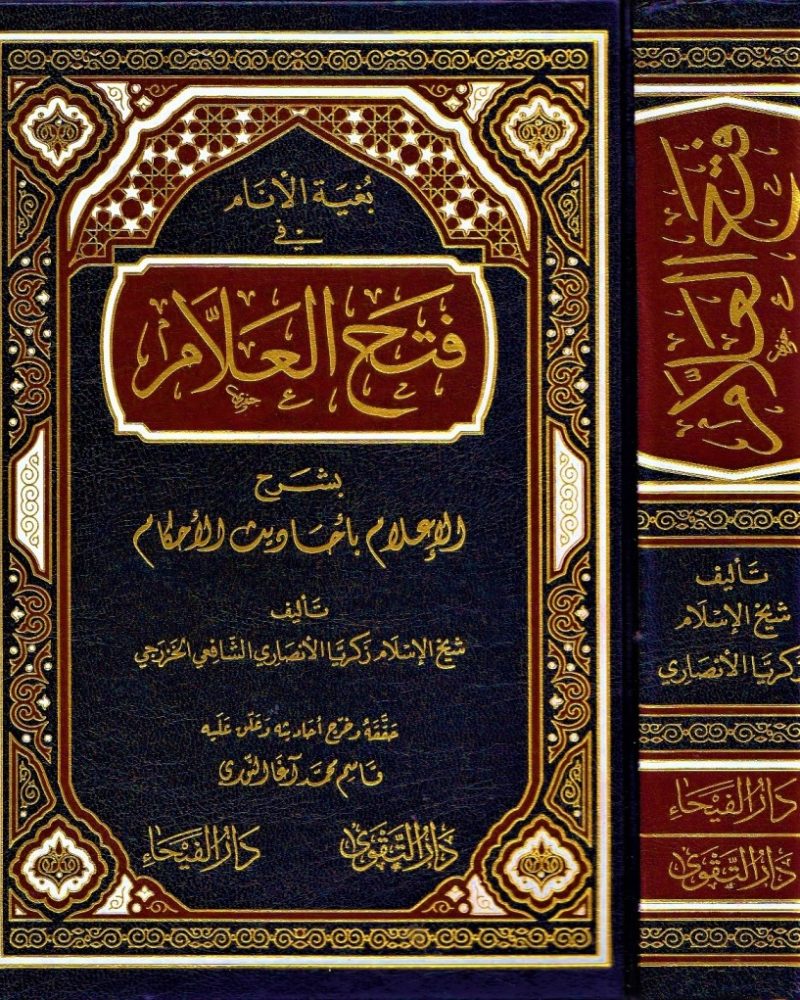 بُغية الأنام
في
فتح العلَّام
بشرح
الإعلام بأحاديث الأحكام
تأليف
شيخ الإسلام زكريا الأنصاري الشَّافعي الخزرجي
حقَّقهُ وخرج أحاديثه وعلق عليه
قاسم محمد آغا النوري
دار التقوى
دار الفيحاء
فتح العلَّام
تأليف
شيخ الإسلام
زكريا الأنصاري
دار الفيحاء
دار التقوى